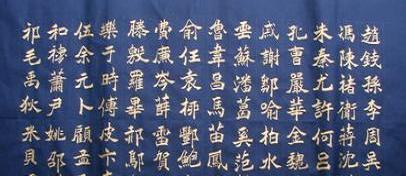 趙錢孫李周吳
馮陳褚衛蔣沈
朱秦尤許何呂
孔曹嚴華金魏
戚謝鄒喻柏水
雲蘇潘葛奚范
魯韋昌馬苗鳳
俞任袁柳酆鮑
費廉岑薛雷賀
滕殷羅畢郝鄔
樂于時傅皮卞
伍余元卜顧孟
和穆蕭尹姚邵
祁毛禹狄米貝